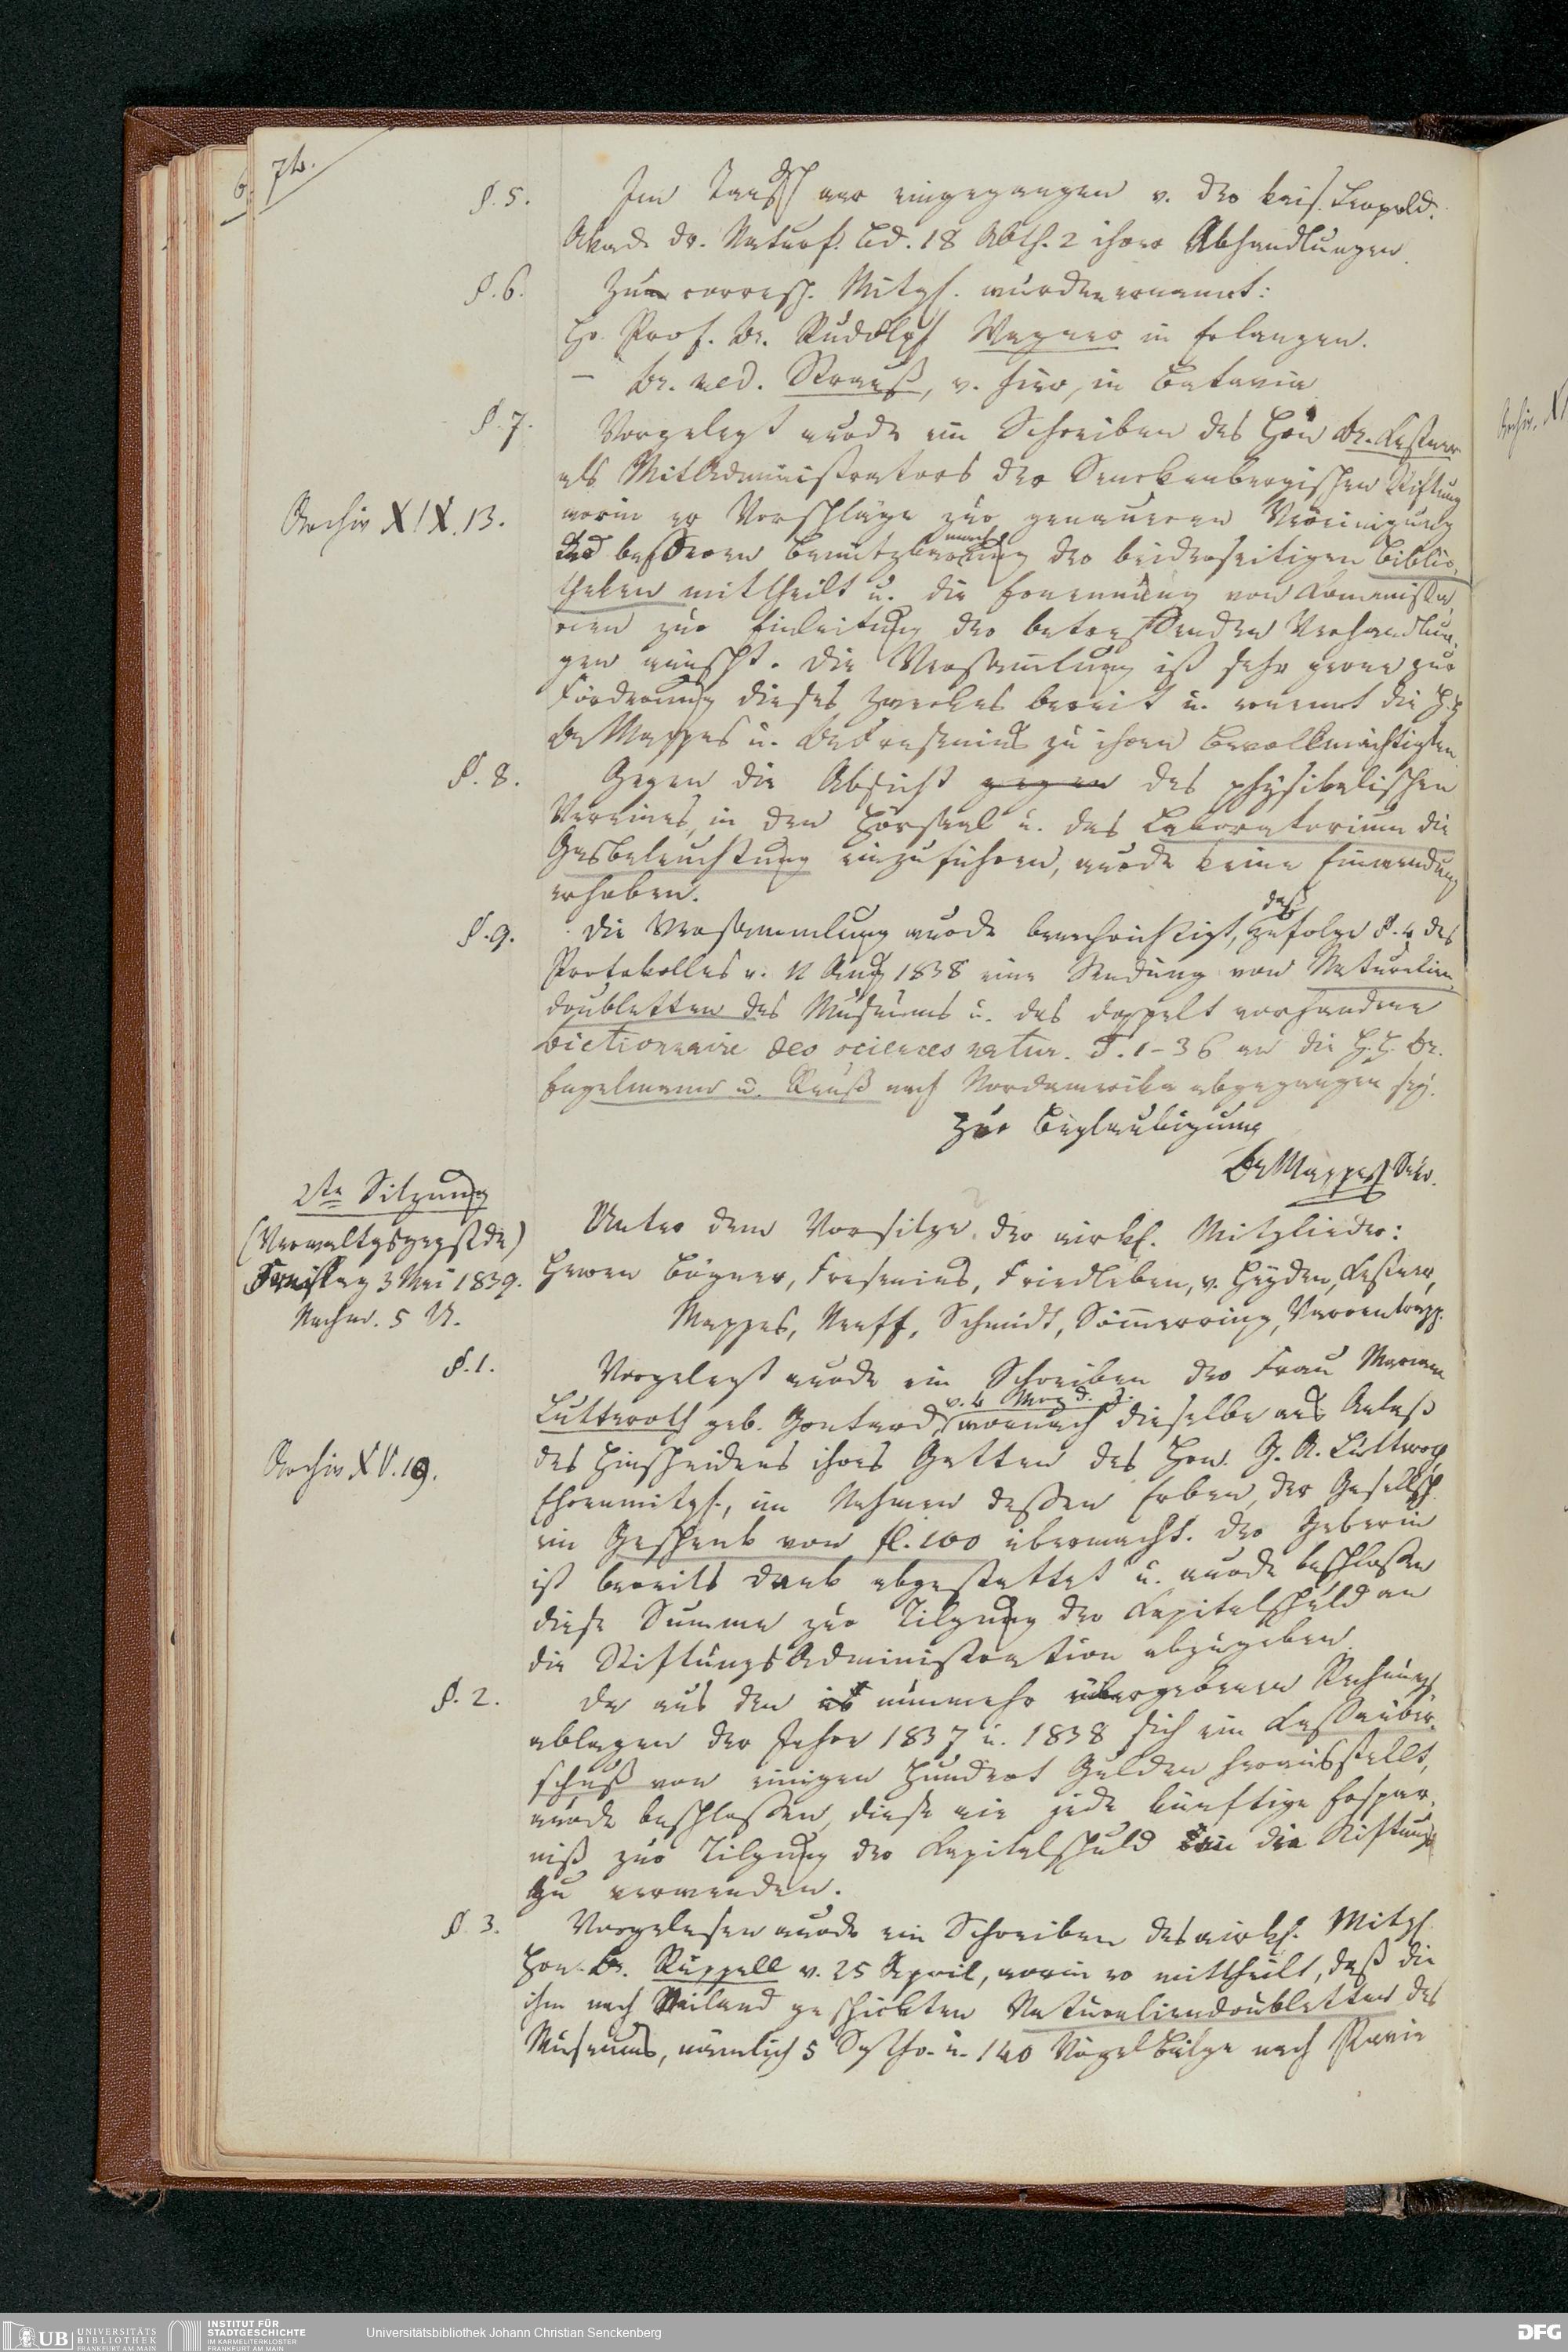 74.
§. 5. Im Tausch war eingegangen v. der kais. Leopold.
Akad. dr. Naturf. Bd. 18 Abth. 2 ihrer Abhandlungen.
§. 6. Zu corresp. Mitgl. wurden ernannt:
Hr. Prof. Dr. Rudolph Wagner in Erlangen.
— Dr. med. Strauß, v. hier, in Batavia
§. 7. Vorgelegt wurde ein Schreiben des Hrn Dr. Kestner
als MitAdministrators der Senckenbergischen Stiftung
Archiv XIX. 13.
worin er Vorschläge zur genaueren Vereinigung
und besseren Benutzung der beiderseitigen Biblio-
theken mittheilt u. die Ernennung von Kommissa-
rien zur Einleitung der betreffenden Verhandlun-
gen wünscht. Die Versammlung ist sehr gerne zur
Förderung dieses Zweckes bereit u. ernennt die H.H.
Dr Mappes u. Dr Fresenius zu ihren Bevollmächtigten
§. 8. Gegen die Absicht gegen des physikalischen
Vereines, in den Hörsaal u. das Laboratorium die
Gasbeleuchtung einzuführen, wurde keine Einwendung
erhoben.
§. 9. Die Versammlung wurde benachrichtigt, daß zufolge §. 4 des
Protokolles v. 11 Aug 1838 eine Sendung von Naturalien-
doubletten des Museums u. das doppelt vorhandene
Dictionnaire des sciences natur. T. 1-36 an die H.H. Dr.
Engelmann u. nach Nordamerika abgegangen sey.
Zur Beglaubigung
Dr Mappes Secr.
2te Sitzung
(Verwaltgsgegstde)
3 Mai 1839.
Nachm. 5 U.
Unter dem Vorsitze der wirkl. Mitglieder:
Herren Bögner, Fresenius, Friedleben, v. Heyden, Kestner,
Mappes, Neeff, Schmidt, Sömmerring, Varrentrapp.
§. 1. Vorgelegt wurde ein Schreiben der Frau Mariane
Lutteroth geb. Gontard, v. 4 März d. J. wonach dieselbe aus Anlaß
des Hinscheidens ihres Gatten des Hrn. G. A. Lutteroth,
Archiv XV. 19.
Ehrenmitgl., im Namen dessen Erben, der Gesellsch.
ein Geschenk von fl. 100 übermacht. Der Geberin
ist bereits Dank abgestattet u. wurde beschlossen
diese Summe zur Tilgung der Kapitalschuld an
die StiftungsAdministration abzugeben.
§. 2. Da aus den nunmehr übergebenen Rechnungs-
ablagen der Jahre 1837 u. 1838 sich ein Kassenüber-
schuß von einigen Hundert Gulden herausstellt,
wurde beschlossen, diese wie jede künftige Erspar-
niß zur Tilgung der Kapitalschuld an die Stiftung
zu verwenden.
§. 3. Vorgelesen wurde ein Schreiben des wirkl. Mitgl.
Hrn. Dr. Rüppell v. 25 April, worin er mittheilt, daß die
ihm nach Mailand geschickten Naturaliendoubletten des
Museums, nämlich 5 u. 140 Vögelbälge nach Pavia
UB UNIVERSITÄTS BIBLIOTHEK FRANKFURT AM MAIN
INSTITUT FÜR STADTGESCHICHTE IM KARMELITERKLOSTER FRANKFURT AM MAIN
Universitätsbibliothek Johann Christian Senckenberg
DFG